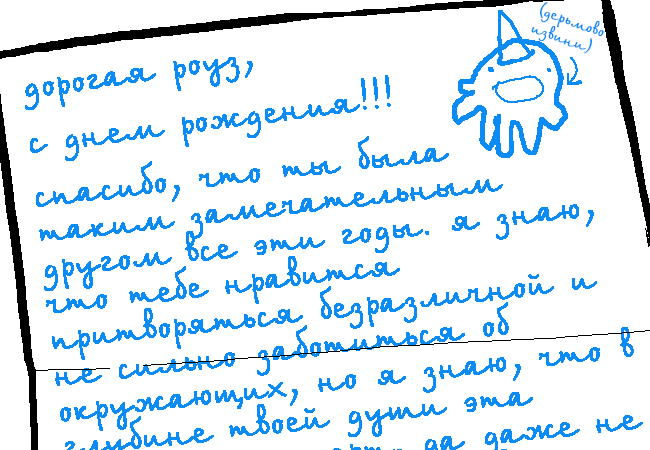 (дерьмово
извини)
дорогая роуз,
с днем рождения!!!
спасибо, что ты была
таким замечательным
другом все эти годы. я знаю,
что тебе нравится
притворяться безразличной и
не сильно заботиться об
окружающих, но я знаю, что в
глубине твоей души эта
да даже не